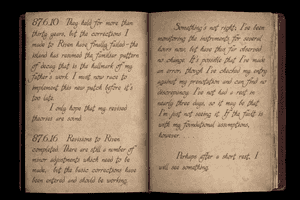 87.6.10 They held for more than
thirty years, but the corrections I
made to Riven have finally failed—the
island has resumed the familiar pattern
of decay that is the hallmark of my
father's work. I must now race to
implement this new patch before it's
too late.
I only hope that my revised
theories are sound.
87.6.16 Revisions to Riven
completed. There are still a number of
minor adjustments which need to be
made, but the basic corrections have
been entered and should be working.
Something's not right; I've been
monitoring the instruments for several
hours now, but have thus far observed
no change. It's possible that I've made
an error, though I've checked my entry
against my presentation and can find no
discrepancy. I've not had a rest in
nearly three days, so it may be that
I'm just not seeing it. If the fault is
with my foundational assumptions,
however
Perhaps after a short rest, I
will see something.